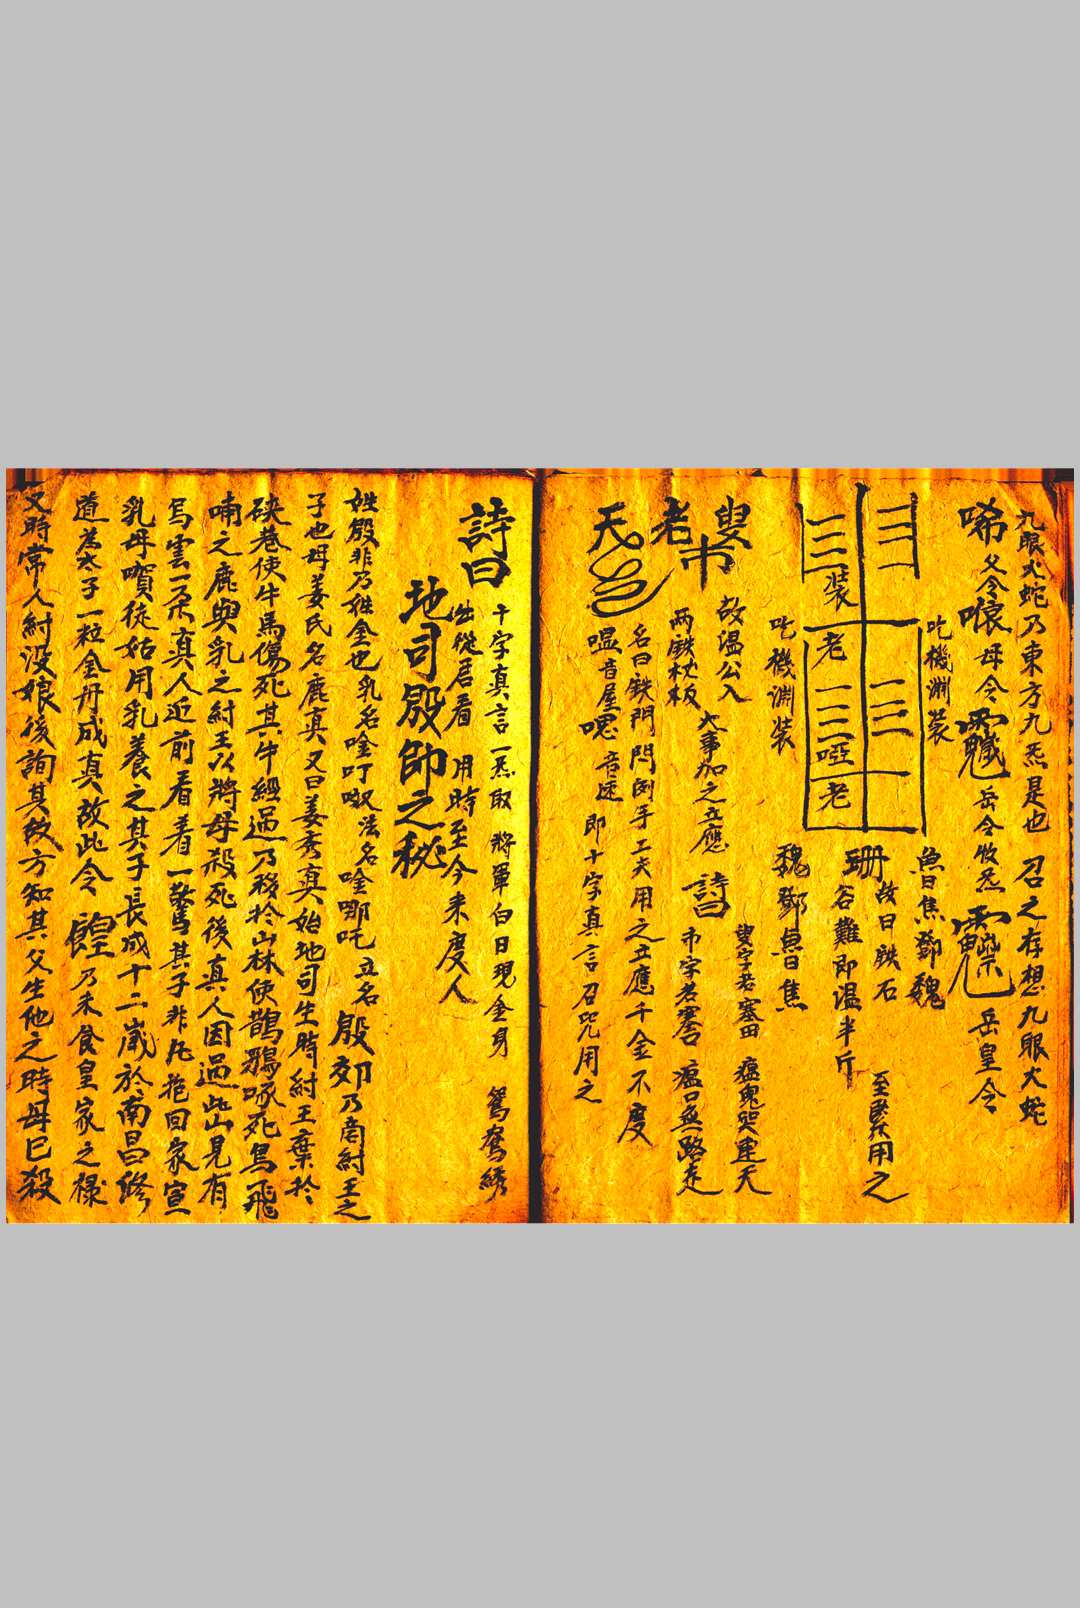 九眼火蛇乃東方九炁是也 召之存想九眼大蛇
唏父令 母令 岳令攸炁 岳皇令
吃機淵装
魚日焦鄧魏
三 三 装
老 三 三 啞
老
珊 故曰鉄石
谷難即温半斤 至緊矣用之
吃機淵装
魏鄧魚日焦
叟市老天
故温公入
两鉄枕板
大事加之立應
詩曰
叟字老塞田 瘟鬼哭連天
市字老塞口 瘟口無路走
名曰鉄門閂倒手工夫用之立應千金不度
嗢音屋 音速
即十字真言召咒用之
詩曰
十字真言一炁取 將軍白日現金身 鴛鴦綉
出從君看 用時至今未度人
地司殷帥之秘
姓殷非乃姓金也乳名唫叮呶法名唫哪吒立名殷郊乃商紂王之
子也母姜氏名鹿真又曰姜秀真始地司生時紂王棄於
硤巷使牛馬傷死其牛經過乃移於山林使鵲鴉啄死鳥飛
喃之鹿與乳之紂王以將母殺死後真人因過此山見有
烏雲一朵真人近前看看一驚其子非凡抱回家宣
乳母賀徒姑用乳養之其子長成十二歲於南昌修
道為太子一粒金丹成真故此令餭乃未食皇家之祿
又時常人紂没娘後詢其故方知其父生他之時母已殺